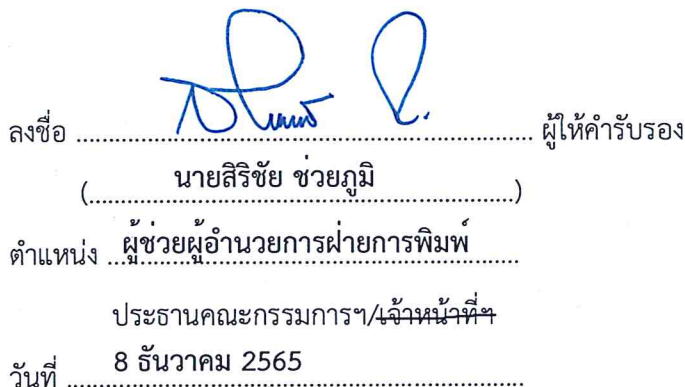 ลงชื่อ ........................................................................ ผู้ให้คำรับรอง
(....นายสิริชัย ช่วยภูมิ....)
ตำแหน่ง ..ผู้ช่วยผู้อำนวยการฝ่ายการพิมพ์..
ประธานคณะกรรมการฯ/เจ้าหน้าที่ฯ
วันที่ ....8 ธันวาคม 2565....